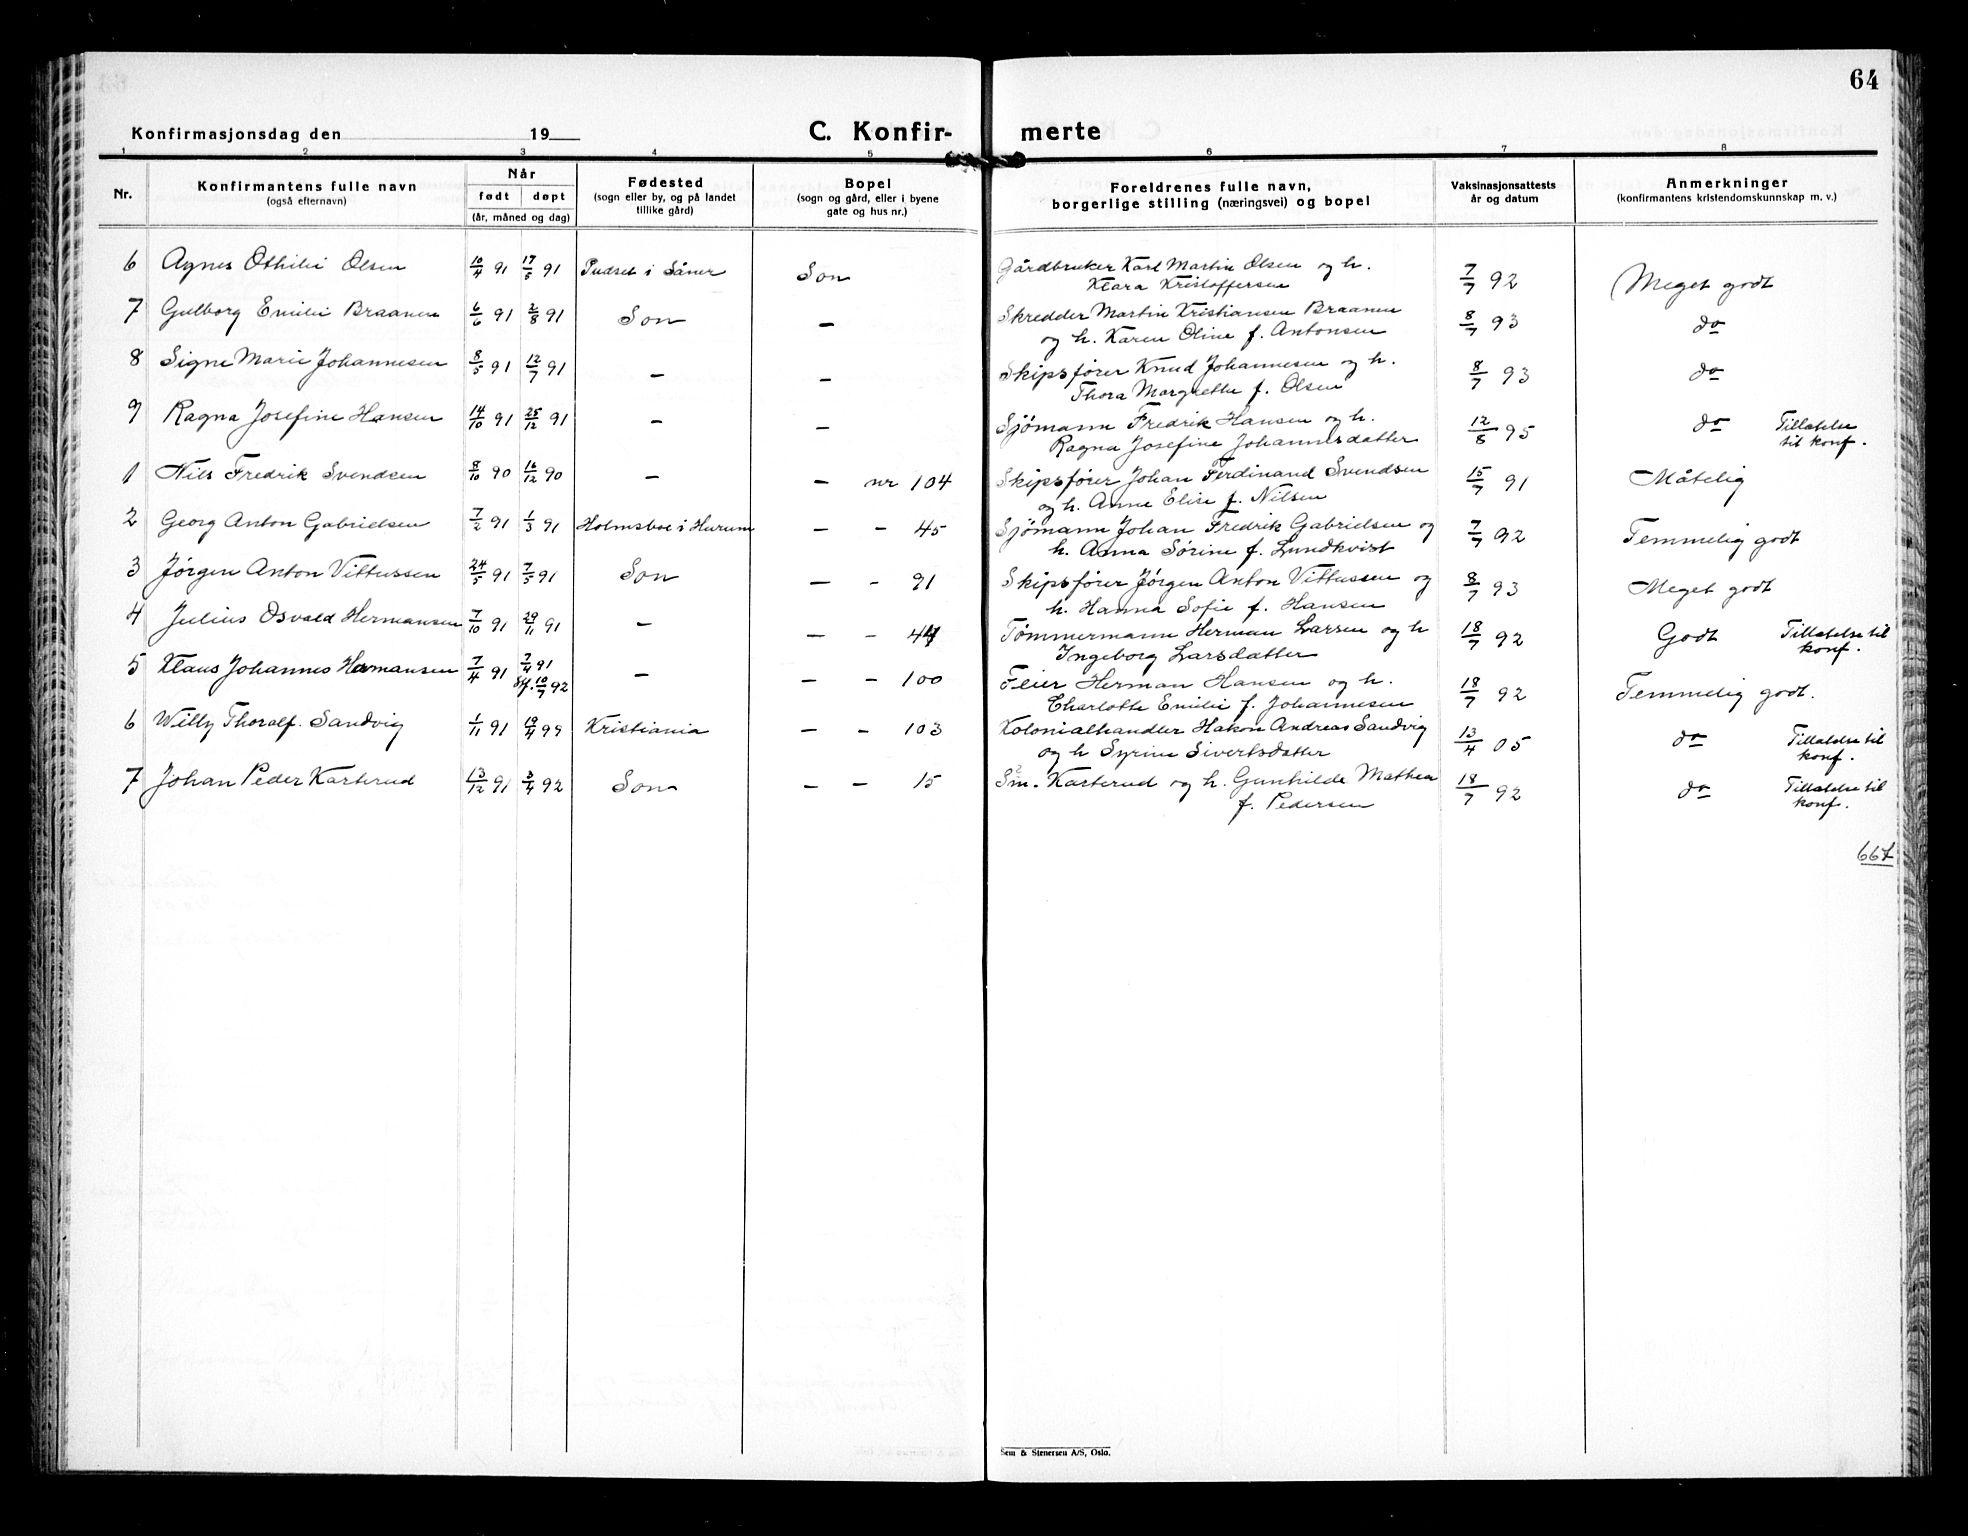 64
Konfirmasjonsdag den 19
C. Konfir- merte
1 2 3 4 5 6 7 8
Nr.
Konfirmantens fulle navn
(også efternavn)
Når
født døpt
(år, måned og dag)
Fødested
(sogn eller by, og på landet
tillike gård)
Bopel
(sogn og gård, eller i byene
gate og hus nr.)
Foreldrenes fulle navn,
borgerlige stilling (næringsvei) og bopel
Vaksinasjonsattests
år og datum
Anmerkninger
(konfirmantens kristendomskunnskap m. v.)
6 Agnes Othilie Olsen 10/4 91 17/5 91 Pudset i Såner Son Gårdbruker Karl Martin Olsen og h. 7/7 92 Meget godt
Klara Kristoffersen
7 Gulborg Emilie Braanen 6/6 91 2/8 91 Son — Skredder Martin Kristiansen Braanen 8/7 93 do
og h. Karen Oline f. Antonsen
8 Signe Marie Johannesen 8/5 91 12/7 91 — — Skipsfører Knud Johannesen og h. 8/7 93 do
Thora Margrethe f. Olsen
9 Ragna Josefine Hansen 14/10 91 25/12 91 — — Sjömann Fredrik Hansen og h. 12/8 95 do Tillatelse
Ragna Josefine Johannesdatter til konf.
1 Nils Fredrik Svendsen 8/10 90 16/12 90 — — nr 104 Skipsfører Johan Ferdinand Svendsen 15/7 91 Måtelig
og h. Anne Elise f. Nilsen
2 Georg Anton Gabrielsen 7/2 91 1/3 91 Holmsboe i Hurum — - 45 Sjömann Johan Fredrik Gabrielsen og 7/7 92 Temmelig godt
h. Anna Sørine f. Lundkvist
3 Jørgen Anton Vittussen 24/5 91 7/5 91 Son — - 91 Skipsfører Jørgen Anton Vittussen og 8/7 93 Meget godt
h. Hanna Sofie f. Hansen
4 Julius Osvald Hermansen 7/10 91 29/11 91 — — - Tømmermann Herman Larsen og h 18/7 92 Godt Tillatelse til
Ingeborg Larsdatter konf.
5 Klaus Johannes Hermansen 7/4 91 7/4 91 — — - 100 Feier Herman Hansen og h. 18/7 92 Temmelig godt.
10/7 92 Charlotte Emilie f. Johannesen
6 Willy Thoralf. Sandvig 1/11 91 19/4 99 Kristiania — - 103 Kolonialhandler Hakon Andreas Sandvig 13/4 05 do Tillatelse til
og h Syrine Sivertsdatter konf.
7 Johan Peder Karterud 13/12 91 3/4 92 Son — — 15 Sm. Karterud og h. Gunhilde Mathea 18/7 92 do Tillatelse til
f. Pedersen konf.
667
Sem & Stenersen A/S, Oslo.